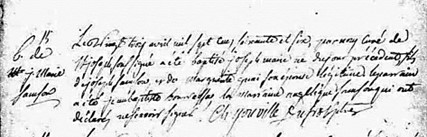 B de
Jh Marie
Le Vingt trois avril mil sept cens soixante et six, par nous Curé de
St joseph soussigné a été baptisé joseph marie né du jour précédent fils
de joseph et de Marguerite son épouse légitime le parrain
a été jean baptiste la marraine angélique qui ont
déclaré ne savoir signer Ch Youville Dufrost ptre